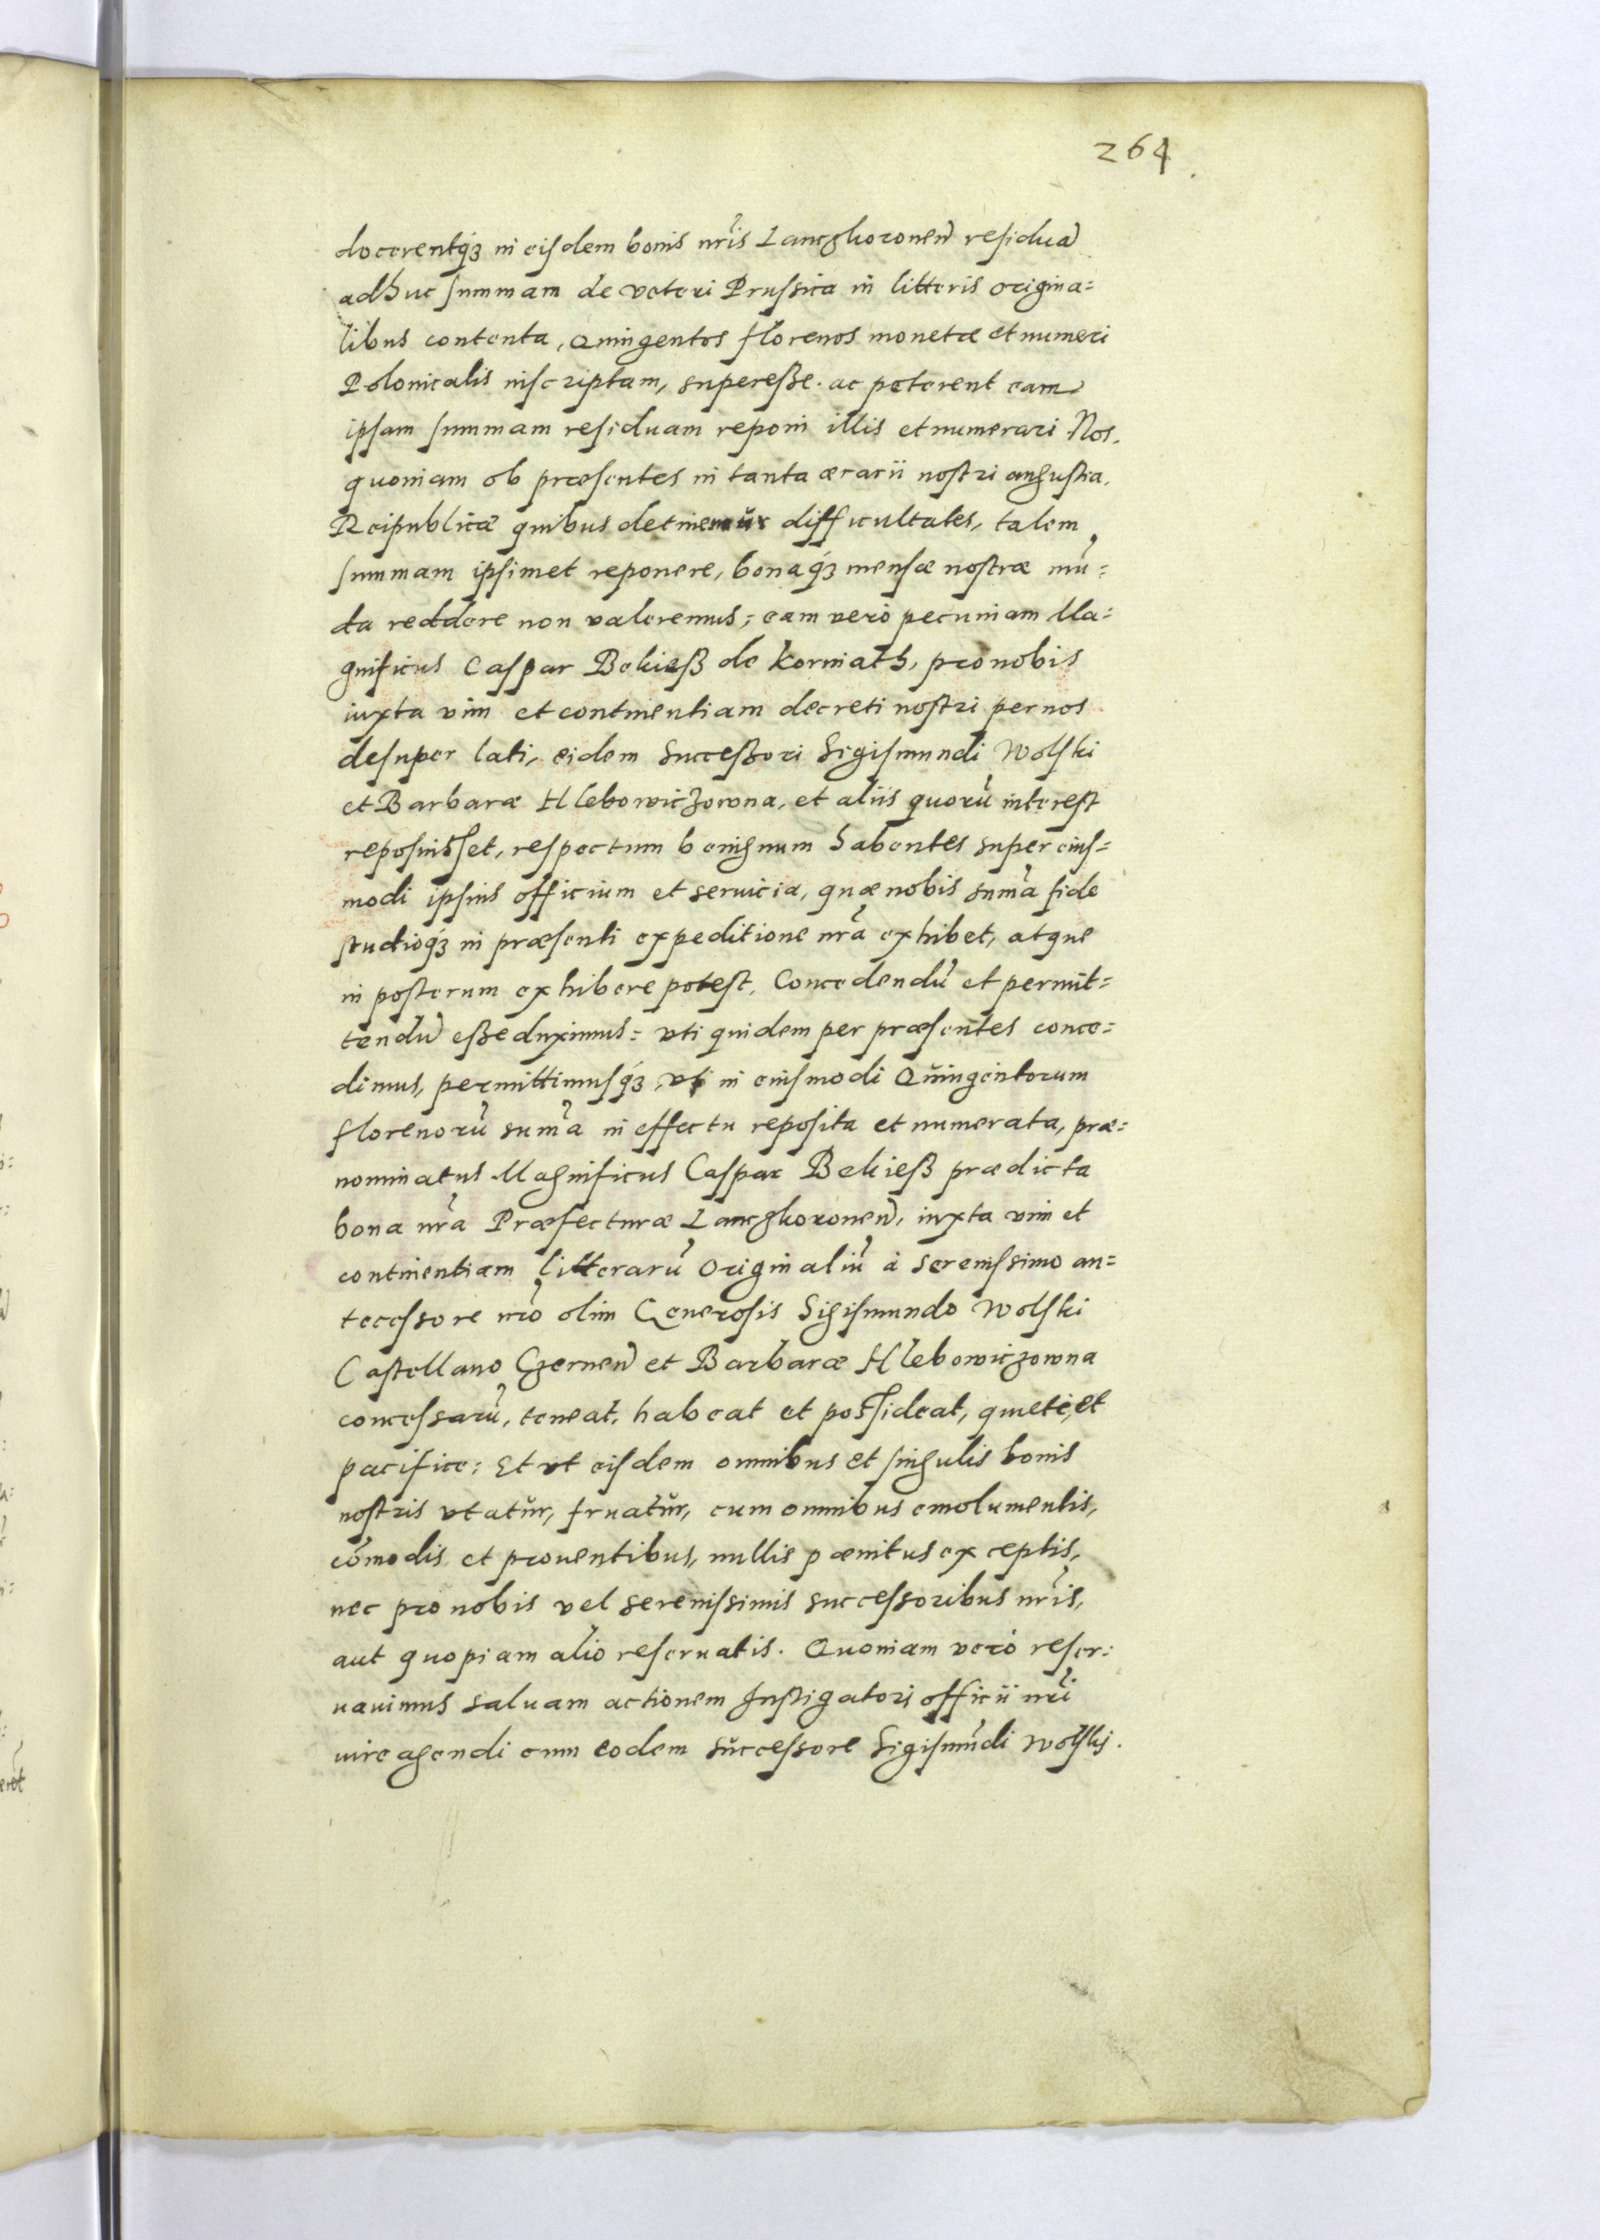 264
docerentq́3 in eisdem bonis nr̃is Lanczkoronen̄ residuā
adhuc summam de veteri Prussica in litteris origina=
libus contenta, Quingentos florenos monetæ et numeri
Polonicalis inscriptam, superesße. ac peterent eam
ipsam summam residuam reponi illis et numerari Nos,
quoniam ob præsentes in tanta ærarii nostri angustia,
Reipublicæ quibus detinemur difficultates, talem
summam ipsimet reponere, bonaq́3 mensæ nostræ mu=
da reddere non valeremus; eam verò pecuniam Ma=
gnificus Caspar Bekieß de Korniath, pro nobis
iuxta vim et continentiam decreti nostri per nos
desuper lati, eidem Succeßori Sigismundi Wolski
et Barbaræ Hlebowiczowna, et aliis quorū interest
reposuisset, respectum benignum habentes super eius=
modi ipsius officium et seruicia, quæ nobis sum̃a fide
studioq́3 in præsenti expeditione nr̃a exhibet, atque
in posterum exhibere potest, Concedendū et permit=
tendū eße duximus= vti quidem per præsentes conce=
dimus, permittimusq́3 vti in eiusmodi Quingentorum
florenorū sum̃a in effectu reposita et numerata, præ=
nominatus Magnificus Caspar Bekieß prædicta
bona nr̃a Præfecturæ Lanczkoronen̄, iuxta vim et
continentiam litterarū Originaliū à serenissimo an=
tecessore nr̃o olim Generosis Sigismundo Wolski
Castellano Czernen̄ et Barbaræ Hlebowiczowna
concessarū, teneat, habeat et possideat, quietè, et
pacifice: Et vt eisdem omnibus et singulis bonis
nostris vtatur, fruatur, cum omnibus emolumentis,
com̃odis et prouentibus, nullis pænitus exceptis,
nec pro nobis vel serenissimis successoribus nr̃is,
aut quopiam alio reseruatis. Quoniam verò reser:
uauimus saluam actionem Instigatori officii nr̃i
iure agendi cum eodem Successore Sigismũdi Wolskij.